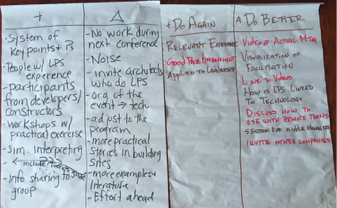 +
- System of
Key points + B
- People w/ LPS
experience
- Participants
from developers/
constructors
- Workshops w/
practical exercise
- Sim. Interpreting
- Info sharing to
group
Δ
- No work during
next conference
- Noise
- invite architects
who do LPS
- Org of the
event → tech
- adjust to the
program
- more practical
stories in building
sites
- more examples
literature
- Effort ahead
+ Do Again
Relevant Exercise
Good
Applied to Leadership
Δ Do Better
Video of Actual Mtg
Visualization of
Link to Video
How is LPS Linked
to Technology
Discuss how to
use with remote teams
Session for
Invite other companies